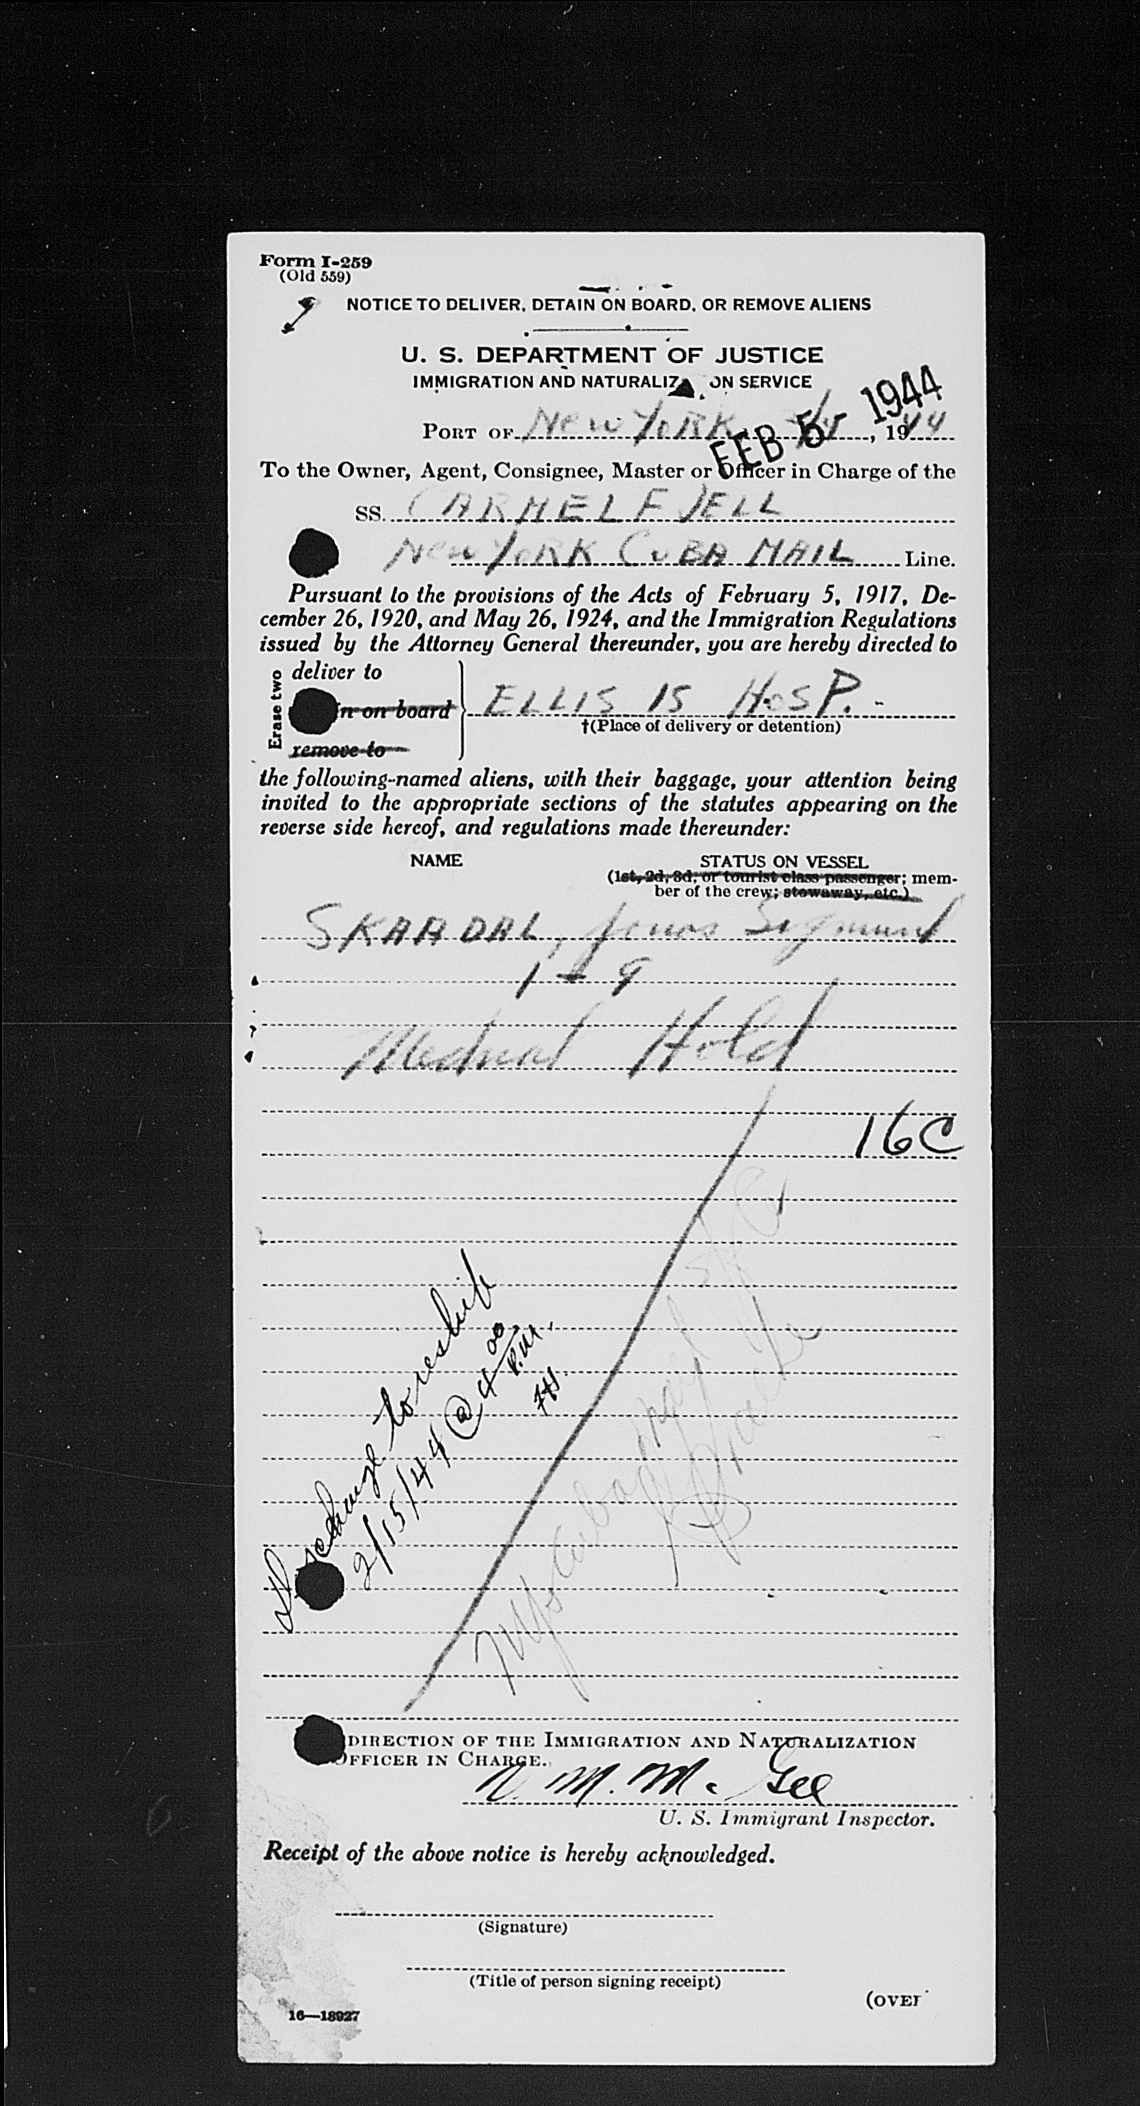 Form I-259
(Old 559)
NOTICE TO DELIVER, DETAIN ON BOARD, OR REMOVE ALIENS
U. S. DEPARTMENT OF JUSTICE
IMMIGRATION AND NATURALIZ ON SERVICE
FEB 5 - 1944
PORT OF New YORK , 1944
To the Owner, Agent, Consignee, Master or Officer in Charge of the
SS. CARMELFJELL
New YORK CUBA MAIL Line.
Pursuant to the provisions of the Acts of February 5, 1917, De-
cember 26, 1920, and May 26, 1924, and the Immigration Regulations
issued by the Attorney General thereunder, you are hereby directed to
Erase two
deliver to
n on board
remove to
ELLIS IS HOSP. -
†(Place of delivery or detention)
the following-named aliens, with their baggage, your attention being
invited to the appropriate sections of the statutes appearing on the
reverse side hereof, and regulations made thereunder:
NAME STATUS ON VESSEL
(1st, 2d, 3d, or tourist class passenger; mem-
ber of the crew; stowaway, etc.)
SKAADAL, Jonas Sigmund
1 - 9
Medical Hold
16C
Discharge to reship
2/15/44 @ 4 00 P.M.
DIRECTION OF THE IMMIGRATION AND NATURALIZATION
OFFICER IN CHARGE.
N. M. McGee
U. S. Immigrant Inspector.
Receipt of the above notice is hereby acknowledged.
(Signature)
(Title of person signing receipt)
(OVER
16—18927